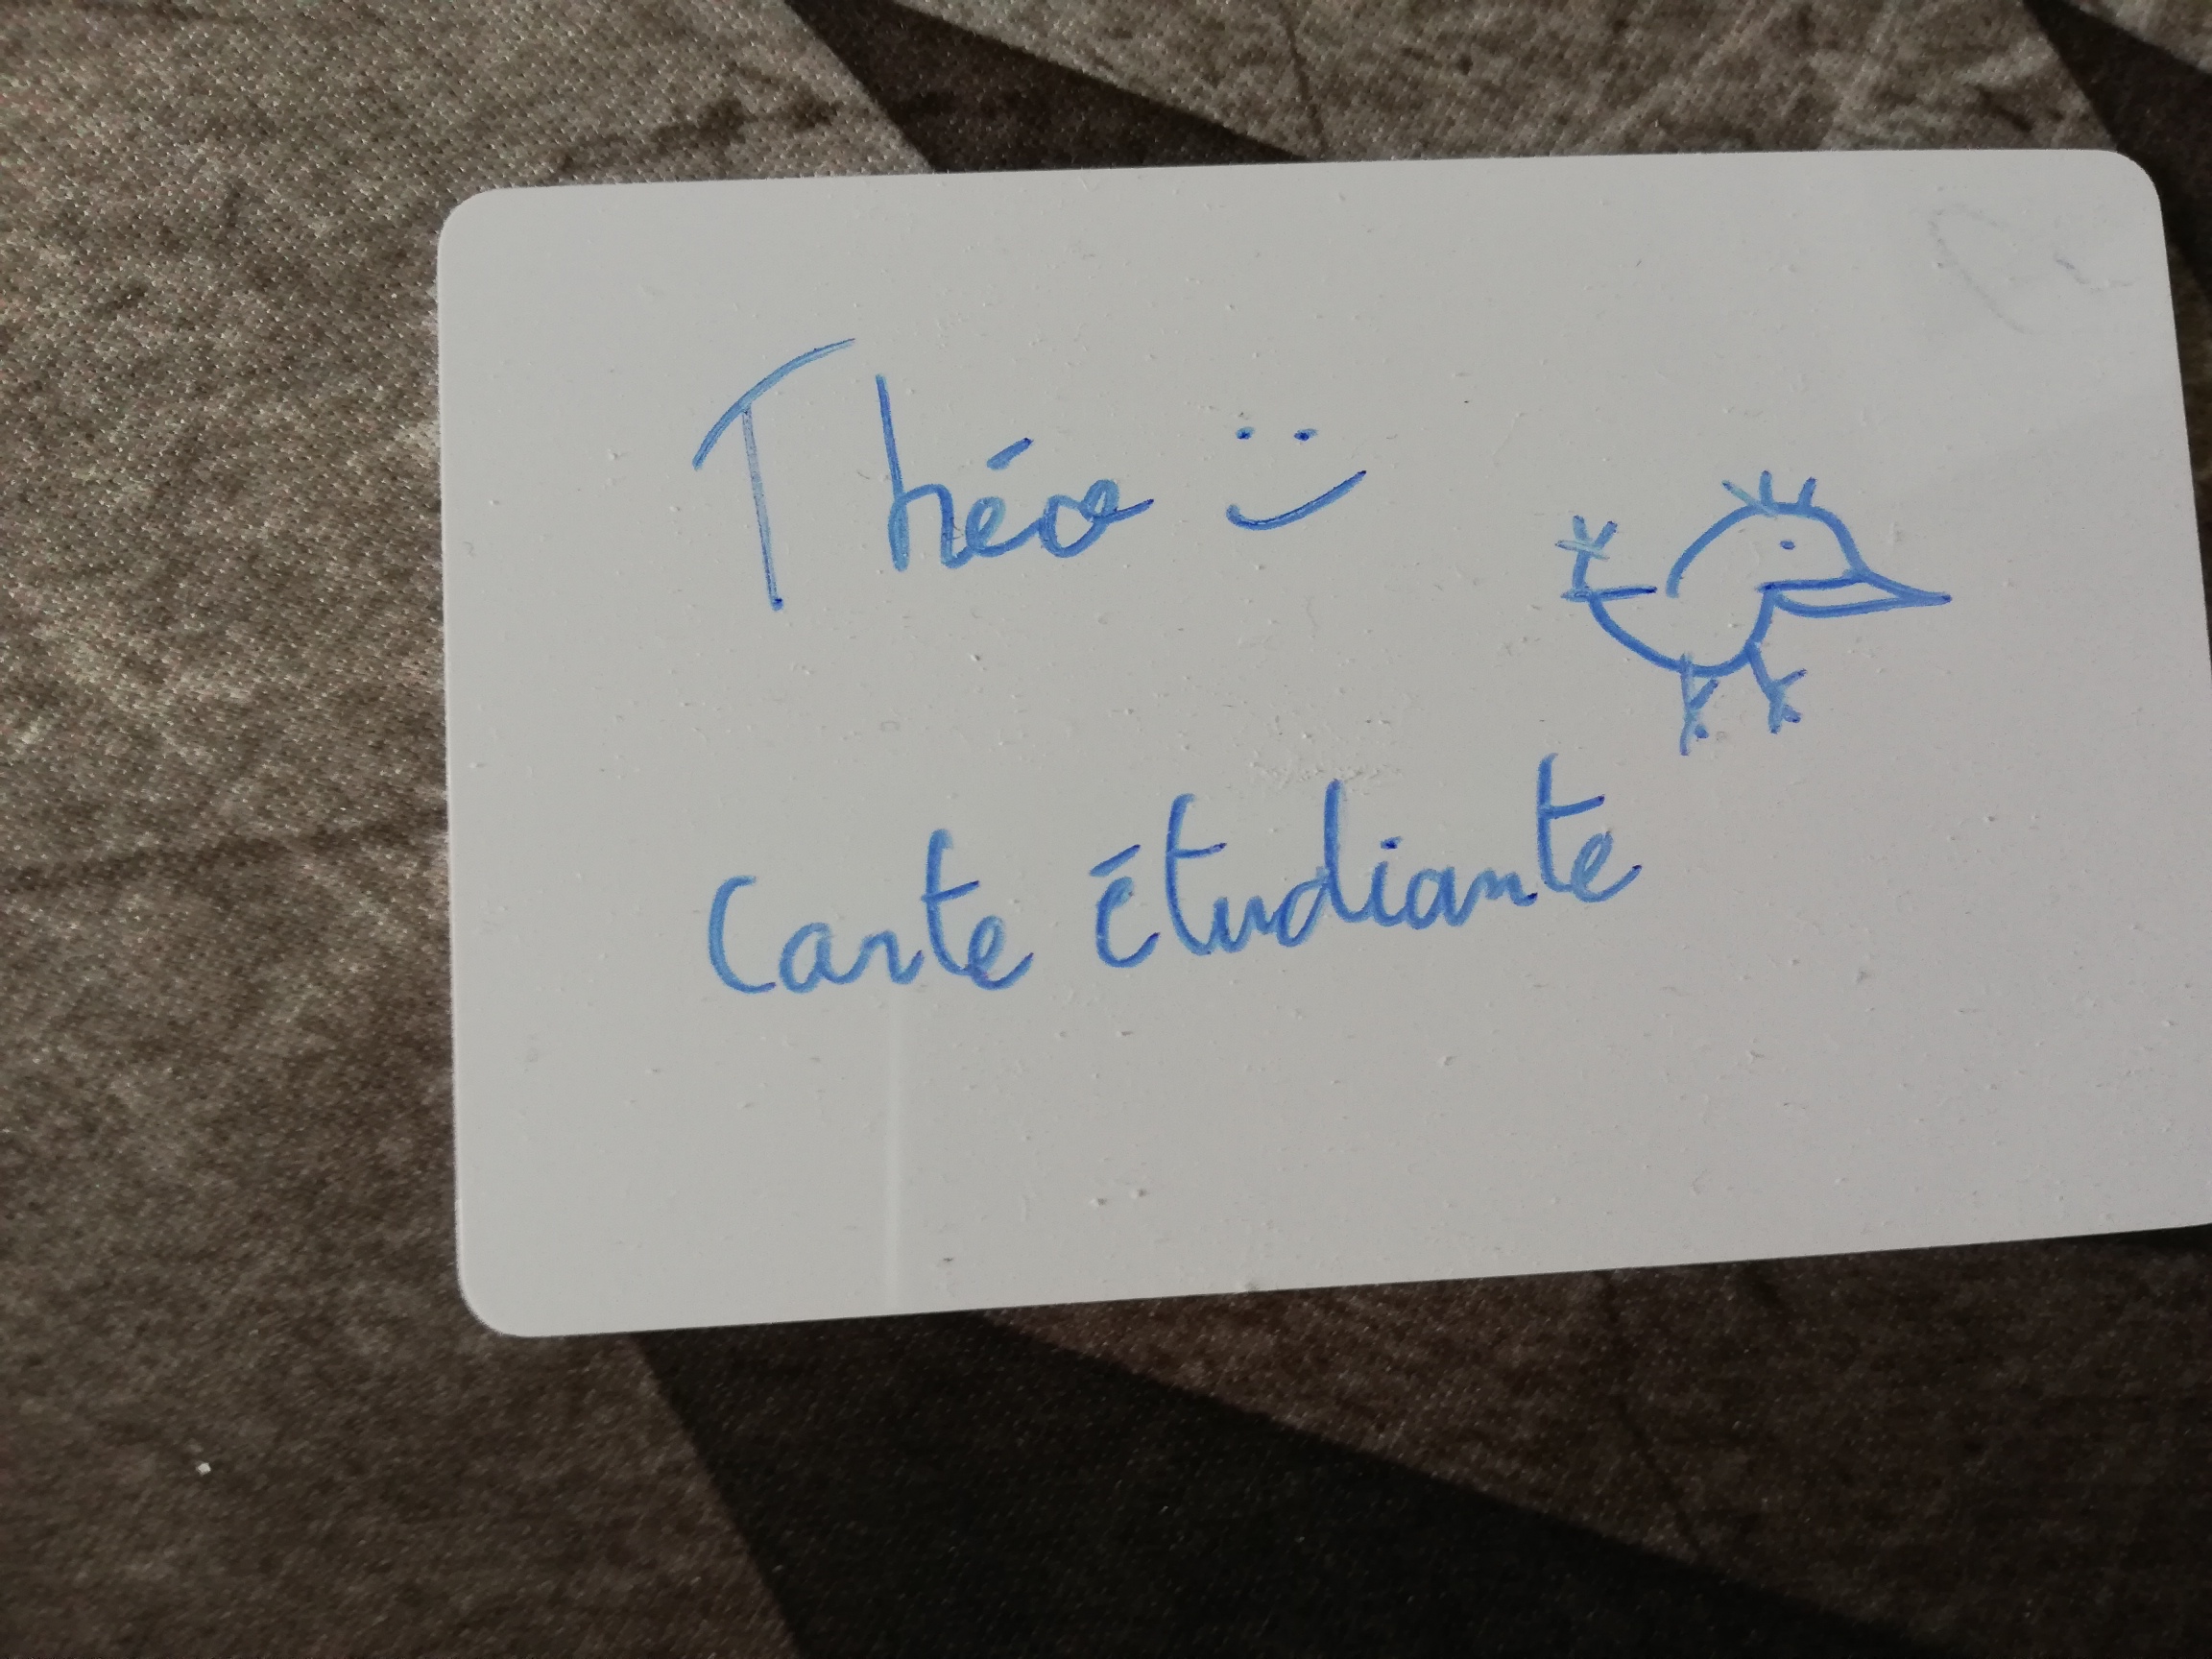 Théo :)
Carte étudiante